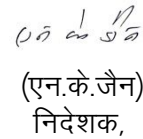 (एन.के.जैन)
निदेशक,